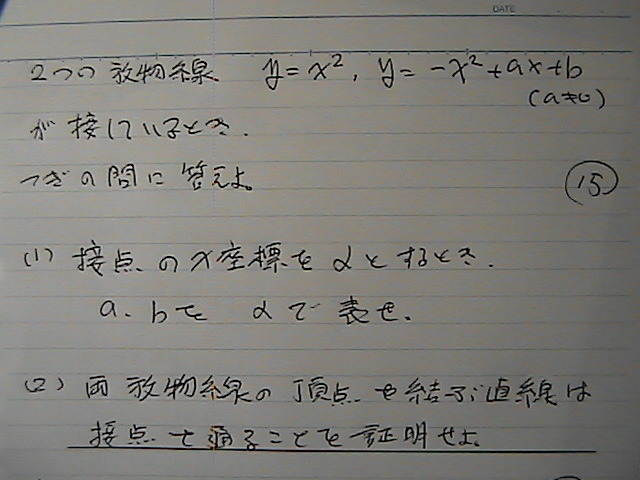 DATE
2つの放物線 y=x², y=-x²+ax+b
(a≠0)
が接しているとき.
つぎの問に答えよ。
15
(1) 接点のx座標をαとするとき.
a.bをαで表せ.
(2) 両放物線の頂点を結ぶ直線は
接点を通ることを証明せよ.